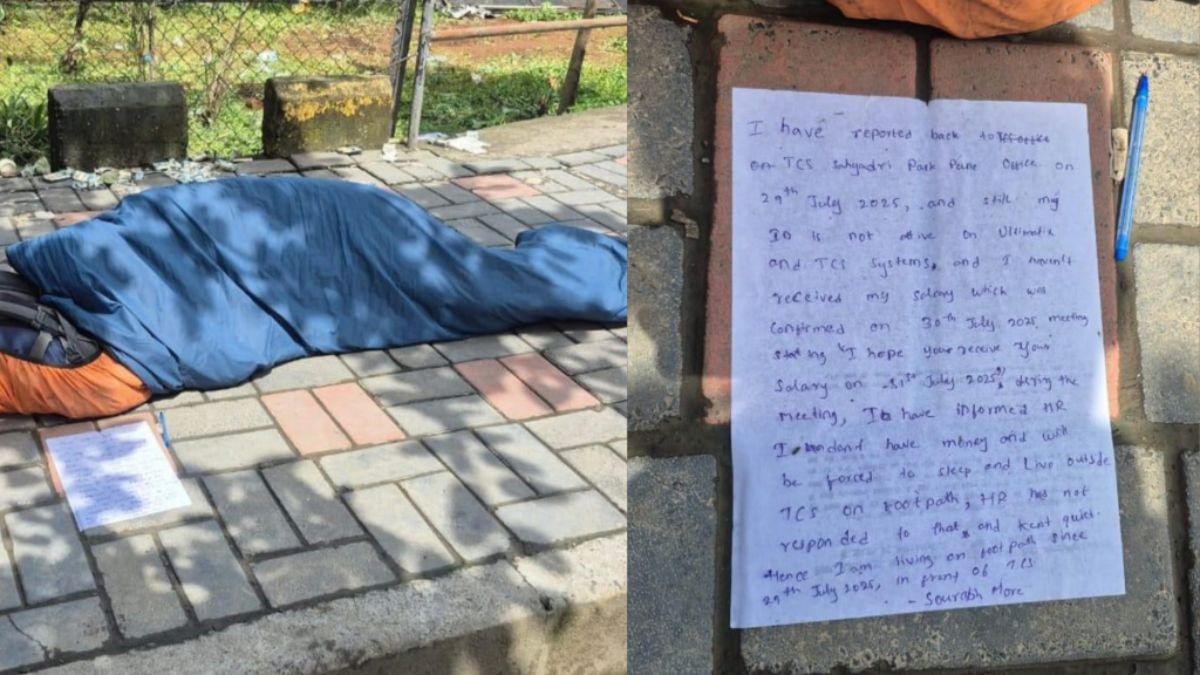 I have reported back to TCS office
on TCS Sahyadri Park Pune Office on
29th July 2025, and still my
ID is not ative on Ultimatix
and TCS Systems, and I haven't
received my salary which was
Confirmed on 30th July 2025 meeting
stating "I hope you receive Your
Salary on 31st July 2025", during the
meeting, I have informed HR
I dont have money and will
be forced to sleep and Live outside
TCS on footpath, HR has not
responded to that, and kept quiet.
Hence I am living on foot path since
29th July 2025, in front of TCS
- Sourabh More